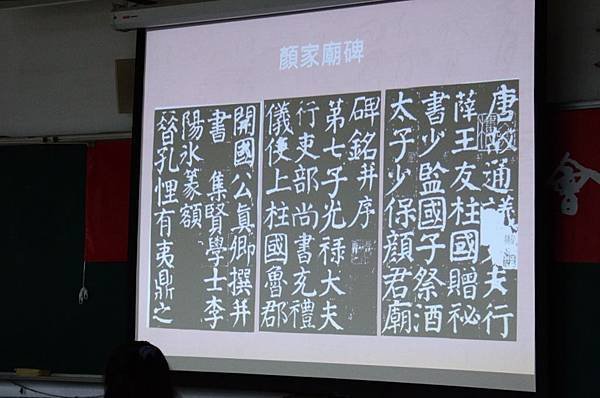 顏家廟碑
唐故通議夫行
薛王友柱國贈祕
書少監國子祭酒
太子少保顏君廟
碑銘并序
第七子光祿大夫
行吏部尚書充禮
儀使上柱國魯郡
開國公眞卿撰并
書 集賢學士李
陽冰篆額
昔孔悝有夷鼎之
會